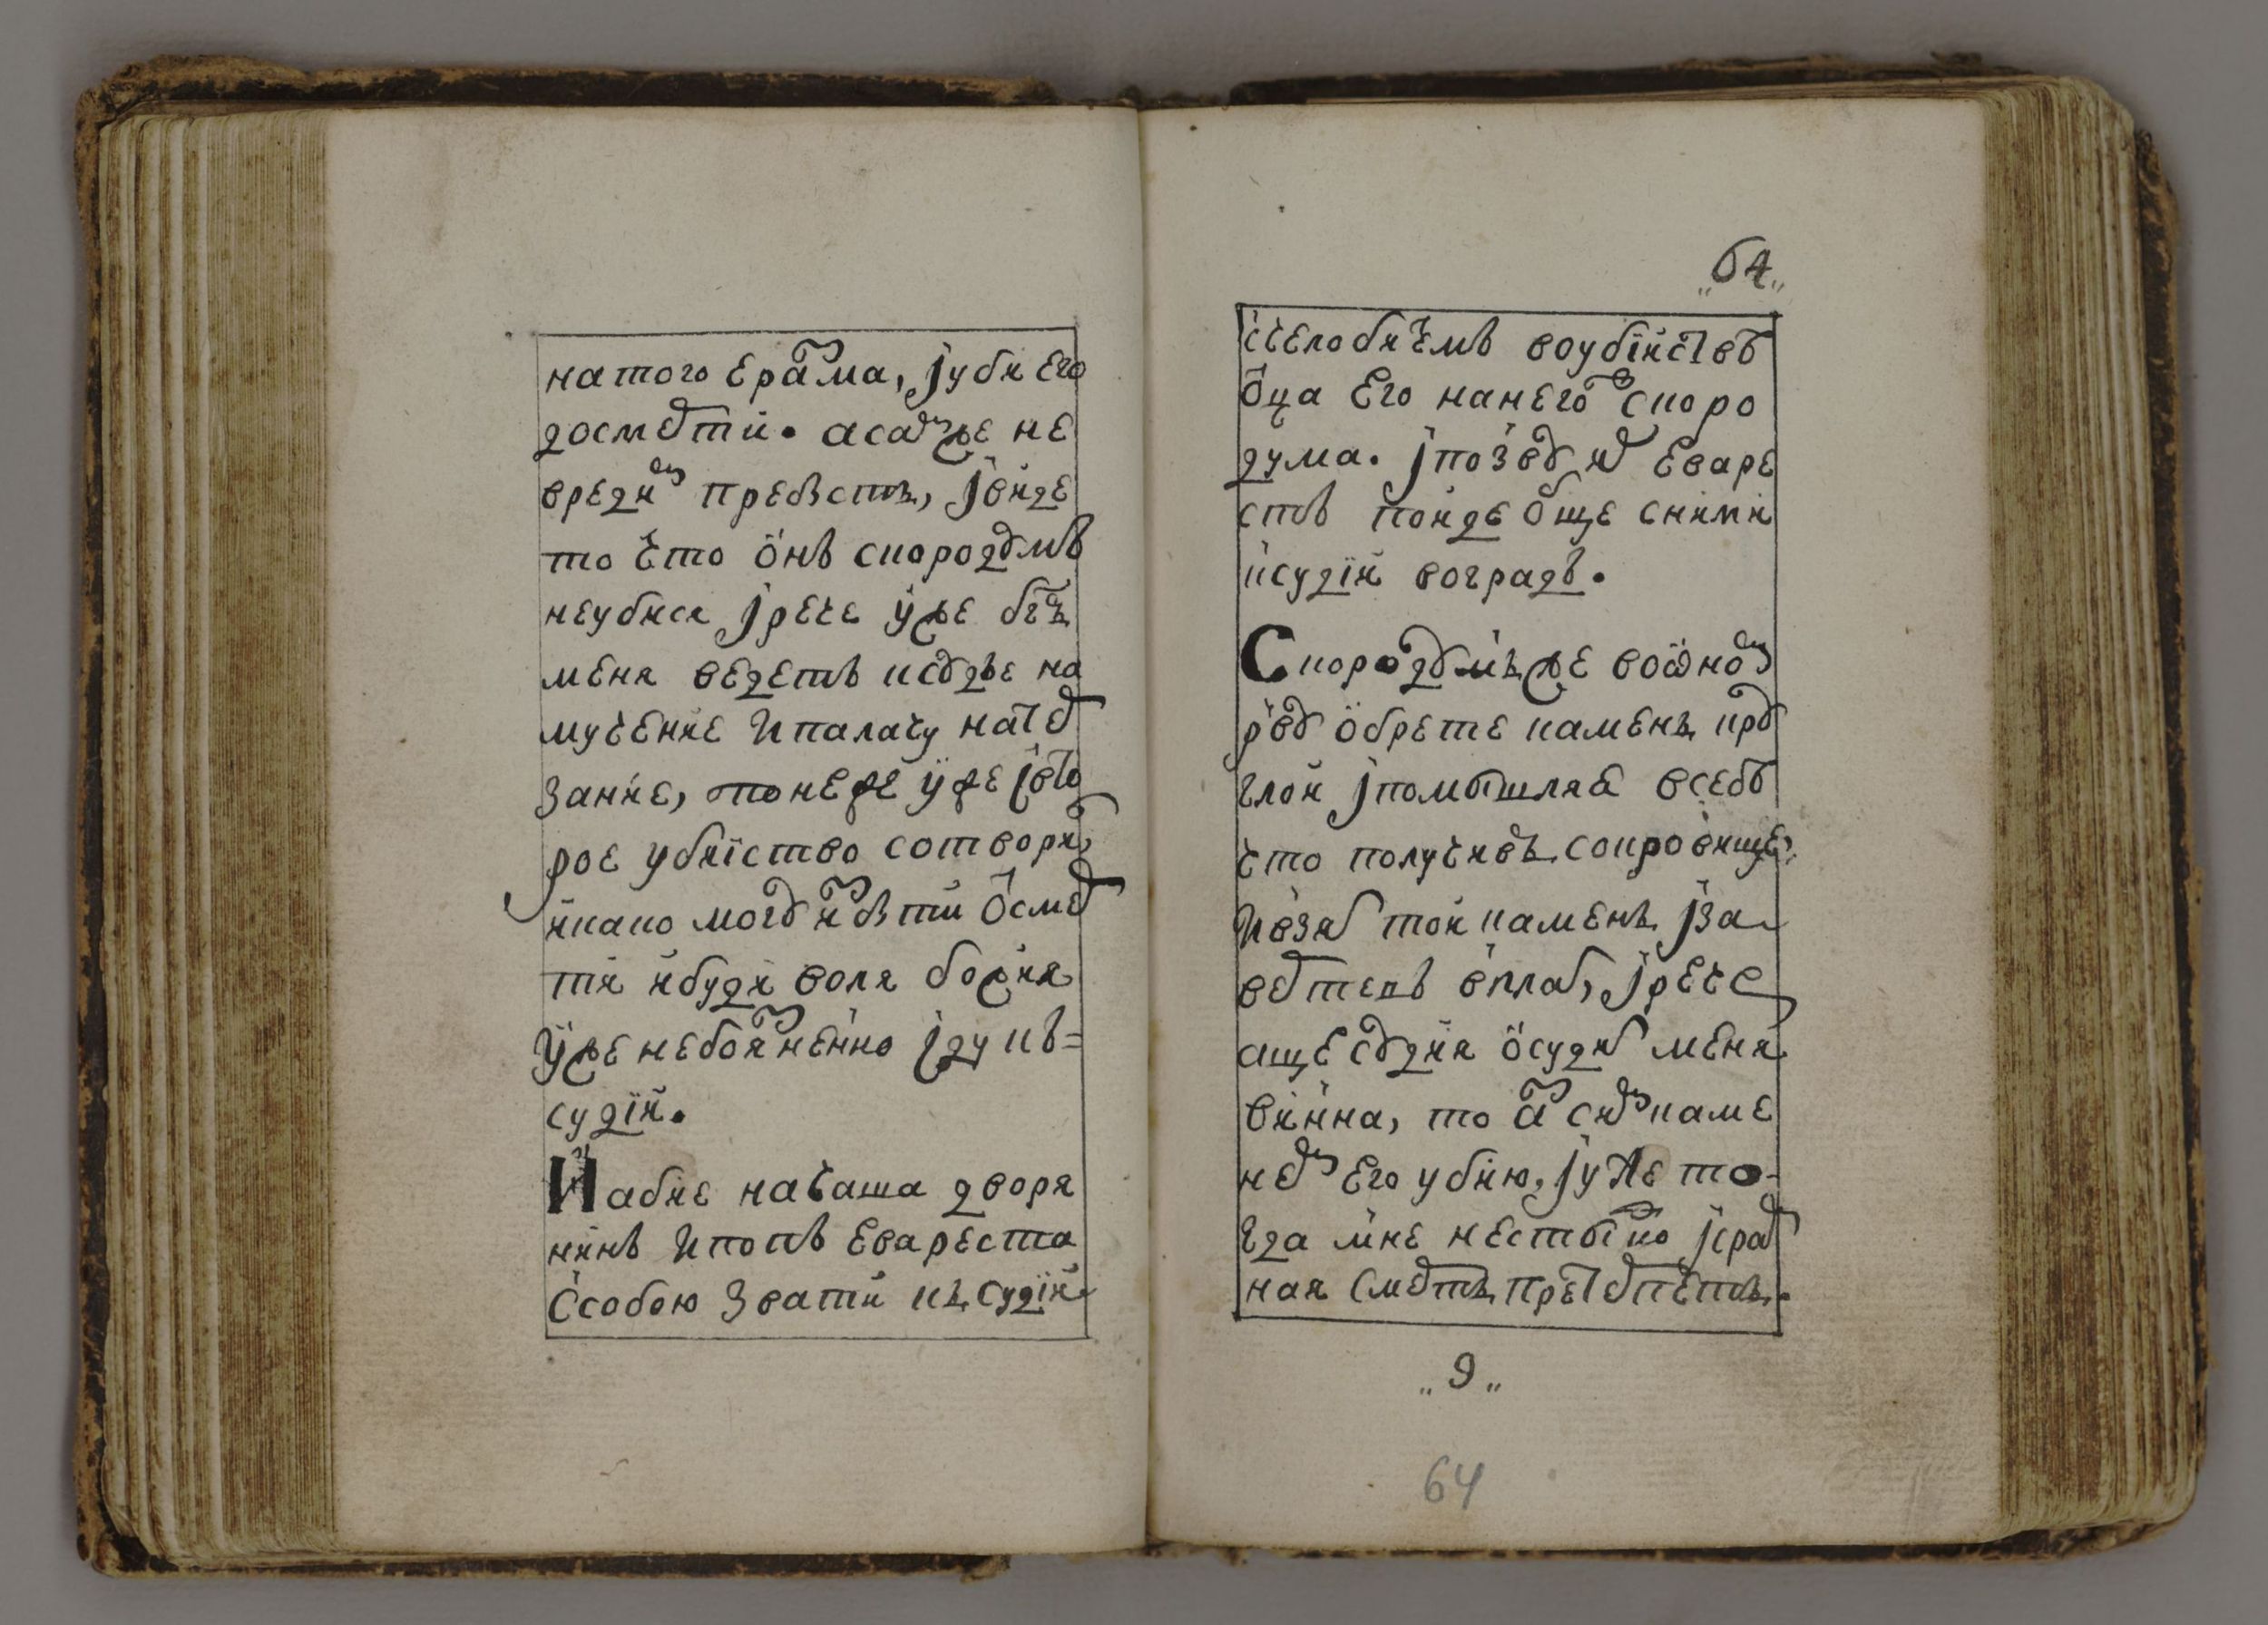 на того ераⷭ҇ма, ј уби его
до сме́рти. а сам же не
вреди́м пребысть, ј виде
то что о́нъ скородумъ
не убися ј рече у́же бг҃ъ
меня ведетъ к суд​ье на
мучение И палачу на тер
зание, понеже у́же ј вто
рое убиїство сотвори,
и како могу и́збыти ѿ сме́р
ти и буди воля божия
у́же небоязненно ј ду къ=
судїи.
И абие начаша дворя
нинъ И попъ Евареста
с собою звати къ судїи
„64„
и с челобитчемъ во убїиствѣ
о҃ца Его на него скоро
дума. ј по зову их еваре
стъ поиде о́бще с ними
и судїи во градъ.
Скородумъ же во ѿном
рву о́брете камень кру
глои ј помышляя в себѣ
что получивъ сокровище,
И взяв тои камень ј за
вертевъ в плат, ј рече
аще судия о́судит меня
винна, то аз сим каме
нем Его убию, ј уже то-
гда мне не стыдко ј срам
ная смерть претерпеть.
„9„
64